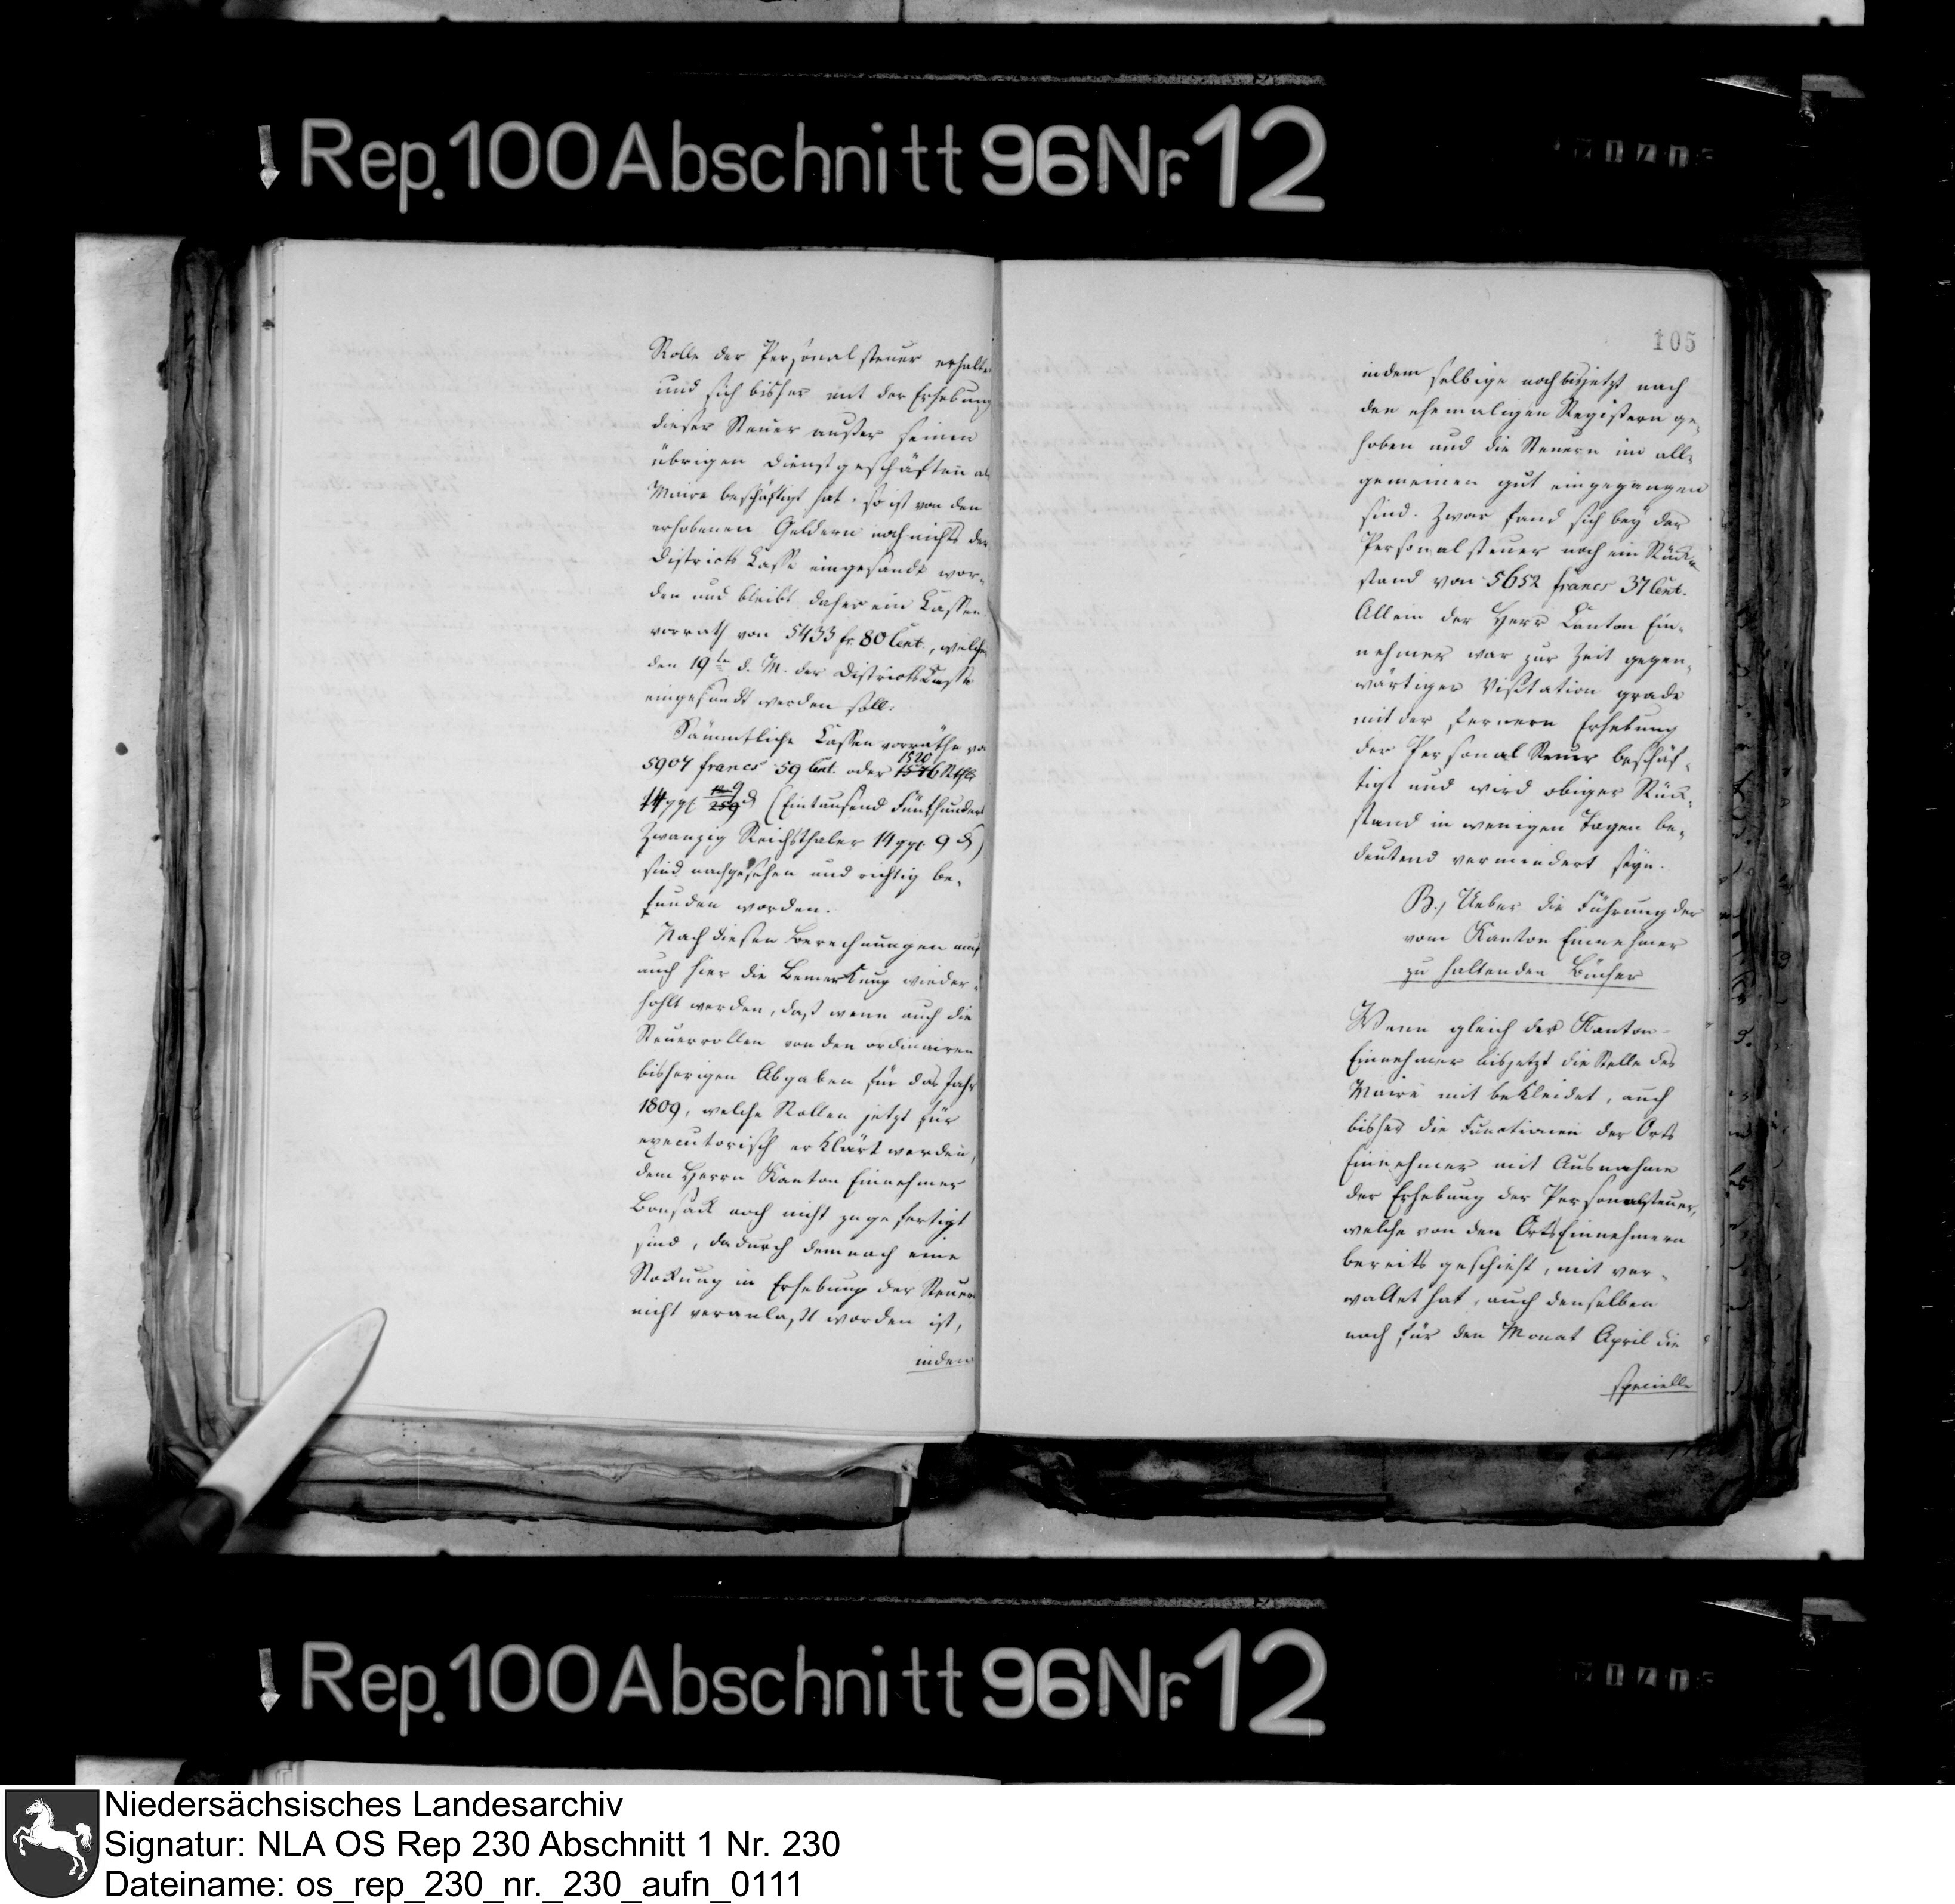 Rep. 100 Abschnitt 96 Nr. 12
Rolle der Personalsteuer erhalten
und sich bisher mit der Erhebung
dieser Steuer außer seinen
übrigen Dienstgeschäften als
Maire beschäftigt hat, so ist von den
erhobenen Geldern noch nichts der
Districts Casse eingesandt wor-
den und bleibt daher ein Cassen-
vorrath von 5433 fr. 80 Cent., welcher
den 19ten d. M. der Districts Casse
eingesandt werden soll.
Sämmtliche Cassenvorräthe von
5907 francs 59 Cent. oder 1520 Rthlr
14 ggl. 9 d (Eintausend Fünfhundert
Zwanzig Reichsthaler 14 ggl. 9 d)
sind nachgesehen und richtig be-
funden worden.
Nach diesen Berechnungen muß
auch hier die Bemerkung wieder-
hohlt werden, daß wenn auch die
Steuerrollen von den ordinairen
bisherigen Abgaben für das Jahr
1809, welche Rollen jetzt für
executorisch erklärt werden,
dem Herrn Kanton Einnehmer
Bonsack noch nicht zugefertigt
sind, dadurch demnach eine
Stockung in Erhebung der Steuern
nicht veranlaßt worden ist,
indem
105
indem selbige noch bisjetzt nach
den ehemaligen Registern ge-
hoben und die Steuern im all-
gemeinen gut eingegangen
sind. Zwar fand sich bey der
Personalsteuer noch ein Rück-
stand von 5652 francs 37 Cent.
Allein der Herr Canton Ein-
nehmer war zur Zeit gegen-
wärtiger Visitation grade
mit der fernern Erhebung
der Personal Steuer beschäf-
tigt und wird obiger Rück-
stand in wenigen Tagen be-
deutend vermindert seyn.
B., Ueber die Führung der
vom Kanton Einnehmer
zu haltenden Bücher
Wenn gleich der Kanton-
Einnehmer bisjetzt die Stelle des
Maire mit bekleidet, auch
bisher die Functionen der Orts
Einnehmer mit Ausnahme
der Erhebung der Personalsteuer,
welche von den Orts Einnehmern
bereits geschieht, mit ver-
waltet hat, auch denselben
noch für den Monat April die
specielle
Rep. 100 Abschnitt 96 Nr. 12
Niedersächsisches Landesarchiv
Signatur: NLA OS Rep 230 Abschnitt 1 Nr. 230
Dateiname: os_rep_230_nr._230_aufn_0111